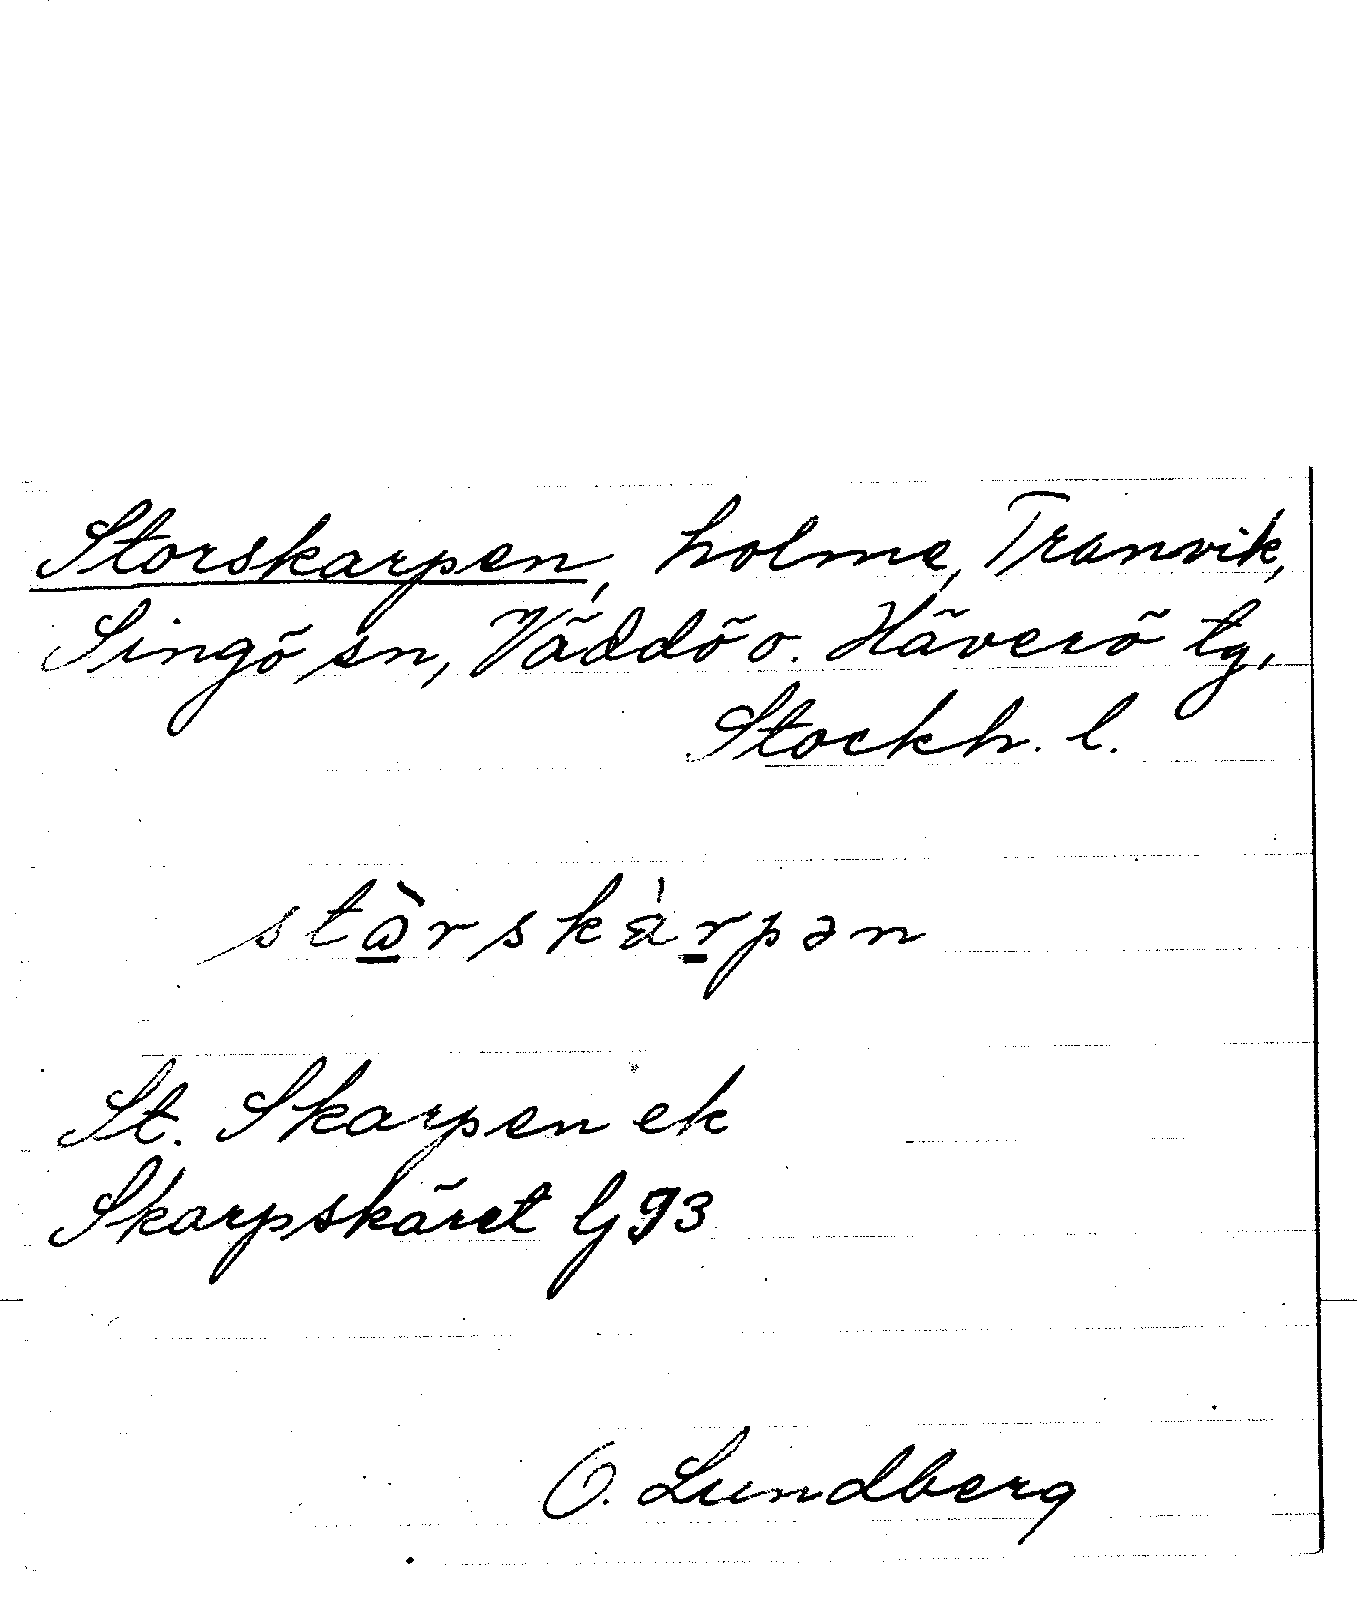 Storskarpen, holme, Tranvik,
Singö sn, Väddö o. Häverö tg,
Stockh. l.
stɷ̀rskárpən
St. Skarpen ek
Skarpskäret Gj 93
O. Lundberg